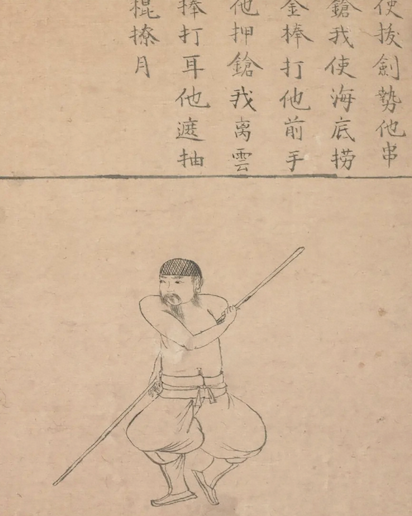 使拔劍勢他串
鎗我使海底捞
金棒打他前手
他押鎗我离雲
捧打耳他遮抽
棍撩月